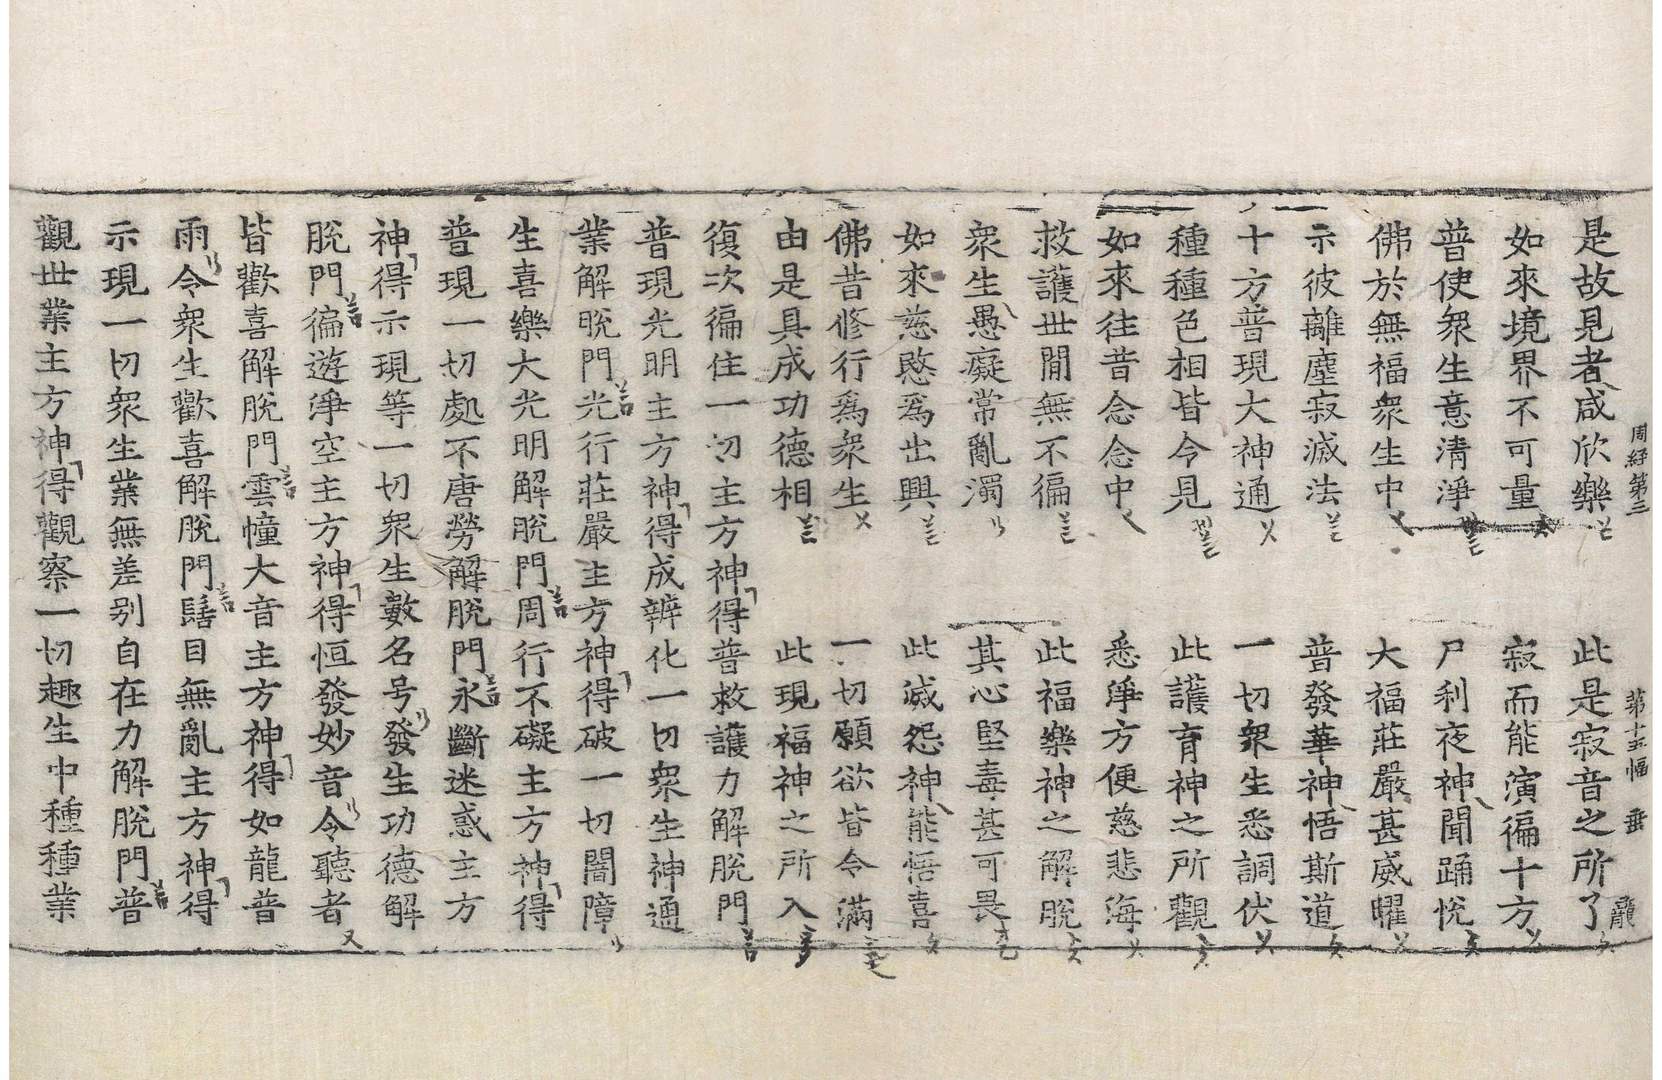 周經第三 第十五幅 垂 龍
是故見者咸欣樂 此是寂音之所了
如來境界不可量 寂而能演徧十方
普使衆生意清淨 尸利夜神聞踊悅
佛於無福衆生中 大福莊嚴甚威曜
示彼離塵寂滅法 普發華神悟斯道
十方普現大神通 一切衆生悉調伏
種種色相皆令見 此護育神之所觀
如來往昔念念中 悉淨方便慈悲海
救護世間無不徧 此福樂神之解脫
衆生愚癡常亂濁 其心堅毒甚可畏
如來慈愍爲出興 此滅怨神能悟喜
佛昔修行爲衆生 一切願欲皆令滿
由是具成功德相 此現福神之所入
復次徧住一切主方神得普救護力解脫門
普現光明主方神得成辨化一切衆生神通
業解脫門光行莊嚴主方神得破一切闇障
生喜樂大光明解脫門周行不礙主方神得
普現一切處不唐勞解脫門永斷迷惑主方
神得示現等一切衆生數名号發生功德解
脫門徧遊淨空主方神得恒發妙音令聽者
皆歡喜解脫門雲幢大音主方神得如龍普
雨令衆生歡喜解脫門髻目無亂主方神得
示現一切衆生業無差別自在力解脫門普
觀世業主方神得觀察一切趣生中種種業